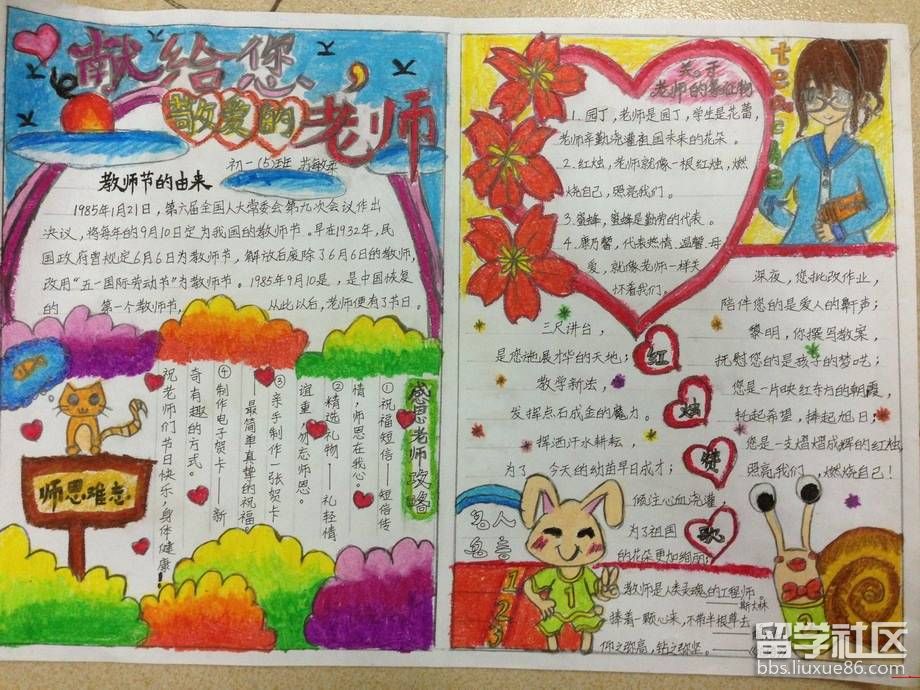 献给您、
敬爱的老师
初一（5）班
教师节的由来
1985年1月21日，第六届全国人大常委会第九次会议作出
决议，将每年的9月10日定为我国的教师节。早在1932年，民
国政府曾规定6月6日为教师节，解放后废除了6月6日的教师节，
改用“五一国际劳动节”为教师节。1985年9月10是，是中国恢复
的 第一个教师节， 从此以后，老师便有了节日。
感恩老师攻略
①祝福短信——短信传
情，师恩在我心。
②精选礼物——礼轻情
谊重，勿忘师恩。
③亲手制作一张贺卡
——最简单真挚的祝福
④制作电子贺卡——新
奇有趣的方式。
祝老师们节日快乐，身体健康！
师恩难忘
关于
老师的象征物
1.园丁，老师是园丁，学生是花蕾，
老师辛勤浇灌祖国未来的花朵。
2.红烛，老师就像一根红烛，燃
烧自己，照亮我们。
3.蜜蜂，蜜蜂是勤劳的代表。
4.康乃馨，代表热情、温馨、母
爱，就像老师一样关
怀着我们。
teacher
红烛赞歌
三尺讲台，
是您施展才华的天地；
教学新法，
发挥点石成金的魔力。
挥洒汗水耕耘，
为了 今天的幼苗早日成才；
倾注心血浇灌，
为了祖国
的花朵更加绚丽；
深夜，您批改作业，
陪伴您的是爱人的鼾声；
黎明，你撰写教案，
抚慰您的是孩子的梦呓；
您是一片映红东方的朝霞，
托起希望，捧起旭日；
您是一支熠熠成辉的红烛，
照亮我们，燃烧自己！
名人
名言
1
2
3
教师是人类灵魂的工程师。
——斯大林
捧着一颗心来，不带半根草去
仰之弥高，钻之弥坚。
1
2
留学社区
bbs.liuxue86.com